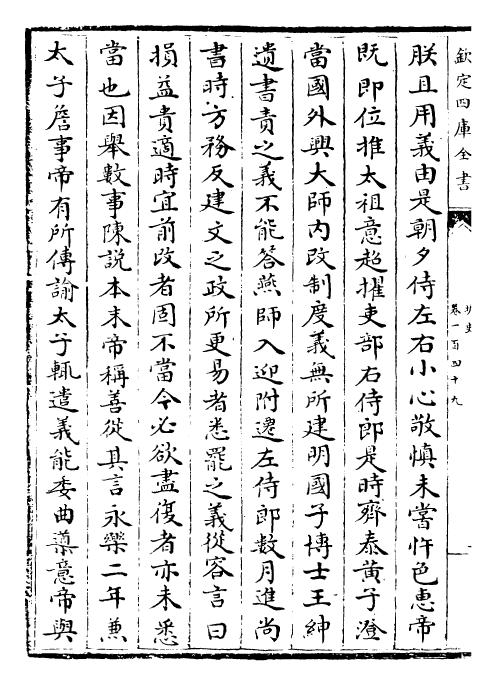 欽定四庫全書
明史
卷一百四十九
朕且用義由是朝夕侍左右小心敬慎未嘗忤色惠帝
既即位推太祖意超擢吏部右侍郎是時齊泰黃子澄
當國外興大師内改制度義無所建明國子博士王紳
遺書責之義不能答燕師入迎附遷左侍郎數月進尚
書時方務反建文之政所更易者悉罷之義從容言曰
損益貴適時宜前改者固不當今必欲盡復者亦未悉
當也因舉數事陳説本末帝稱善從其言永樂二年兼
太子詹事帝有所傳諭太子輒遣義能委曲導意帝與